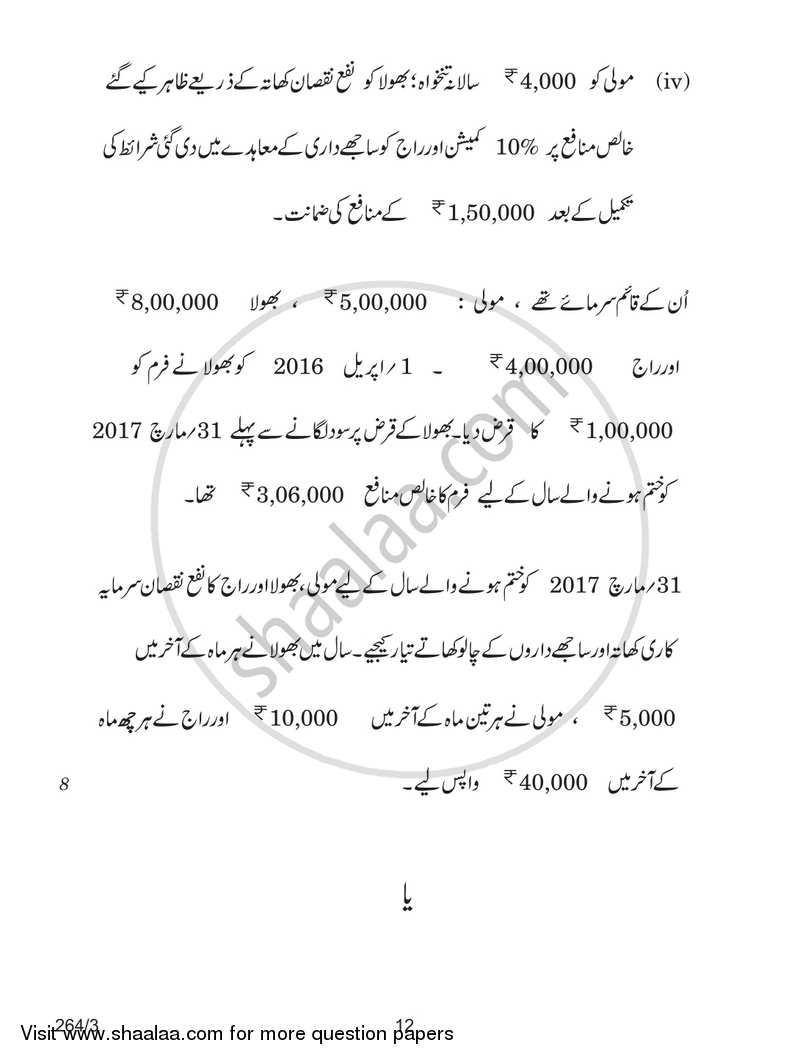 (iv) مولی کو ₹4,000 سالانہ تنخواہ؛ بھولا کو نفع نقصان کھاتہ کے ذریعے ظاہر کیے گئے
خالص منافع پر 10% کمیشن اور راج کو ساجھے داری کے معاہدے میں دی گئی شرائط کی
تکمیل کے بعد ₹1,50,000 کے منافع کی ضمانت۔
اُن کے قائم سرمائے تھے، مولی : ₹5,00,000 ، بھولا ₹8,00,000
اور راج ₹4,00,000 ۔ 1/اپریل 2016 کو بھولا نے فرم کو
₹1,00,000 کا قرض دیا۔ بھولا کے قرض پر سود لگانے سے پہلے 31/مارچ 2017
کو ختم ہونے والے سال کے لیے فرم کا خالص منافع ₹3,06,000 تھا۔
31/مارچ 2017 کو ختم ہونے والے سال کے لیے مولی، بھولا اور راج کا نفع نقصان سرمایہ
کاری کھاتہ اور ساجھے داروں کے چالو کھاتے تیار کیجیے۔ سال میں بھولا نے ہر ماہ کے آخر میں
₹5,000 ، مولی نے ہر تین ماہ کے آخر میں ₹10,000 اور راج نے ہر چھ ماہ
کے آخر میں ₹40,000 واپس لیے۔ 8
یا
shaalaa.com
264/3 12
Visit www.shaalaa.com for more question papers